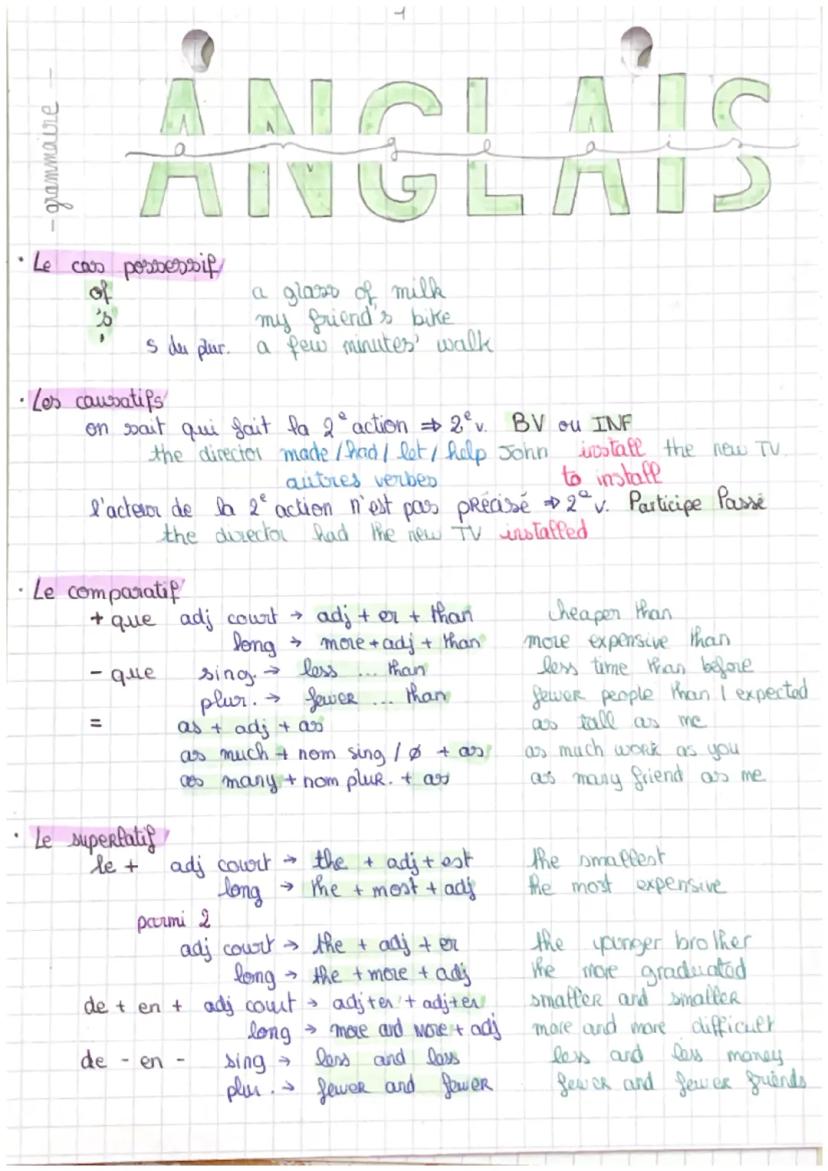 1
- grammaire -
ANGLAIS
anglais
• Le cas possessif
of a glass of milk
's my friend's bike
' s du plur. a few minutes' walk
• Les causatifs
on sait qui fait la 2e action ⇒ 2e v. BV ou INF
the director made / had / let / help John install the new TV
autres verbes to install
l'acteur de la 2e action n'est pas précisé ⇒ 2e v. Participe Passé
the director had the new TV installed
• Le comparatif
+ que adj court → adj + er + than cheaper than
long → more + adj + than more expensive than
- que sing. → less ... than less time than before
plur. → fewer ... than fewer people than I expected
= as + adj + as as tall as me
as much + nom sing / ø + as as much work as you
as many + nom plur. + as as many friend as me
• Le superlatif
le + adj court → the + adj + est the smallest
long → the + most + adj the most expensive
parmi 2
adj court → the + adj + er the younger brother
long → the + more + adj the more graduated
de + en + adj court → adj+er + adj+er smaller and smaller
long → more and more + adj more and more difficult
de - en - sing → less and less less and less money
plur. → fewer and fewer fewer and fewer friends